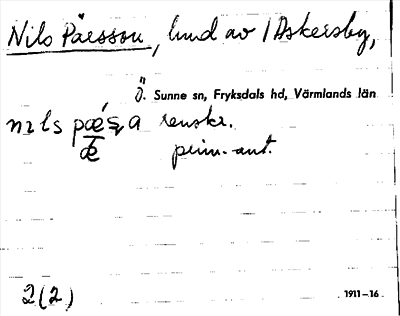 Nils Pärsson, lund av /Askersby,
Ö. Sunne sn, Fryksdals hd, Värmlands län
renskr.
prim.-ant.
2(2) 1911-16.